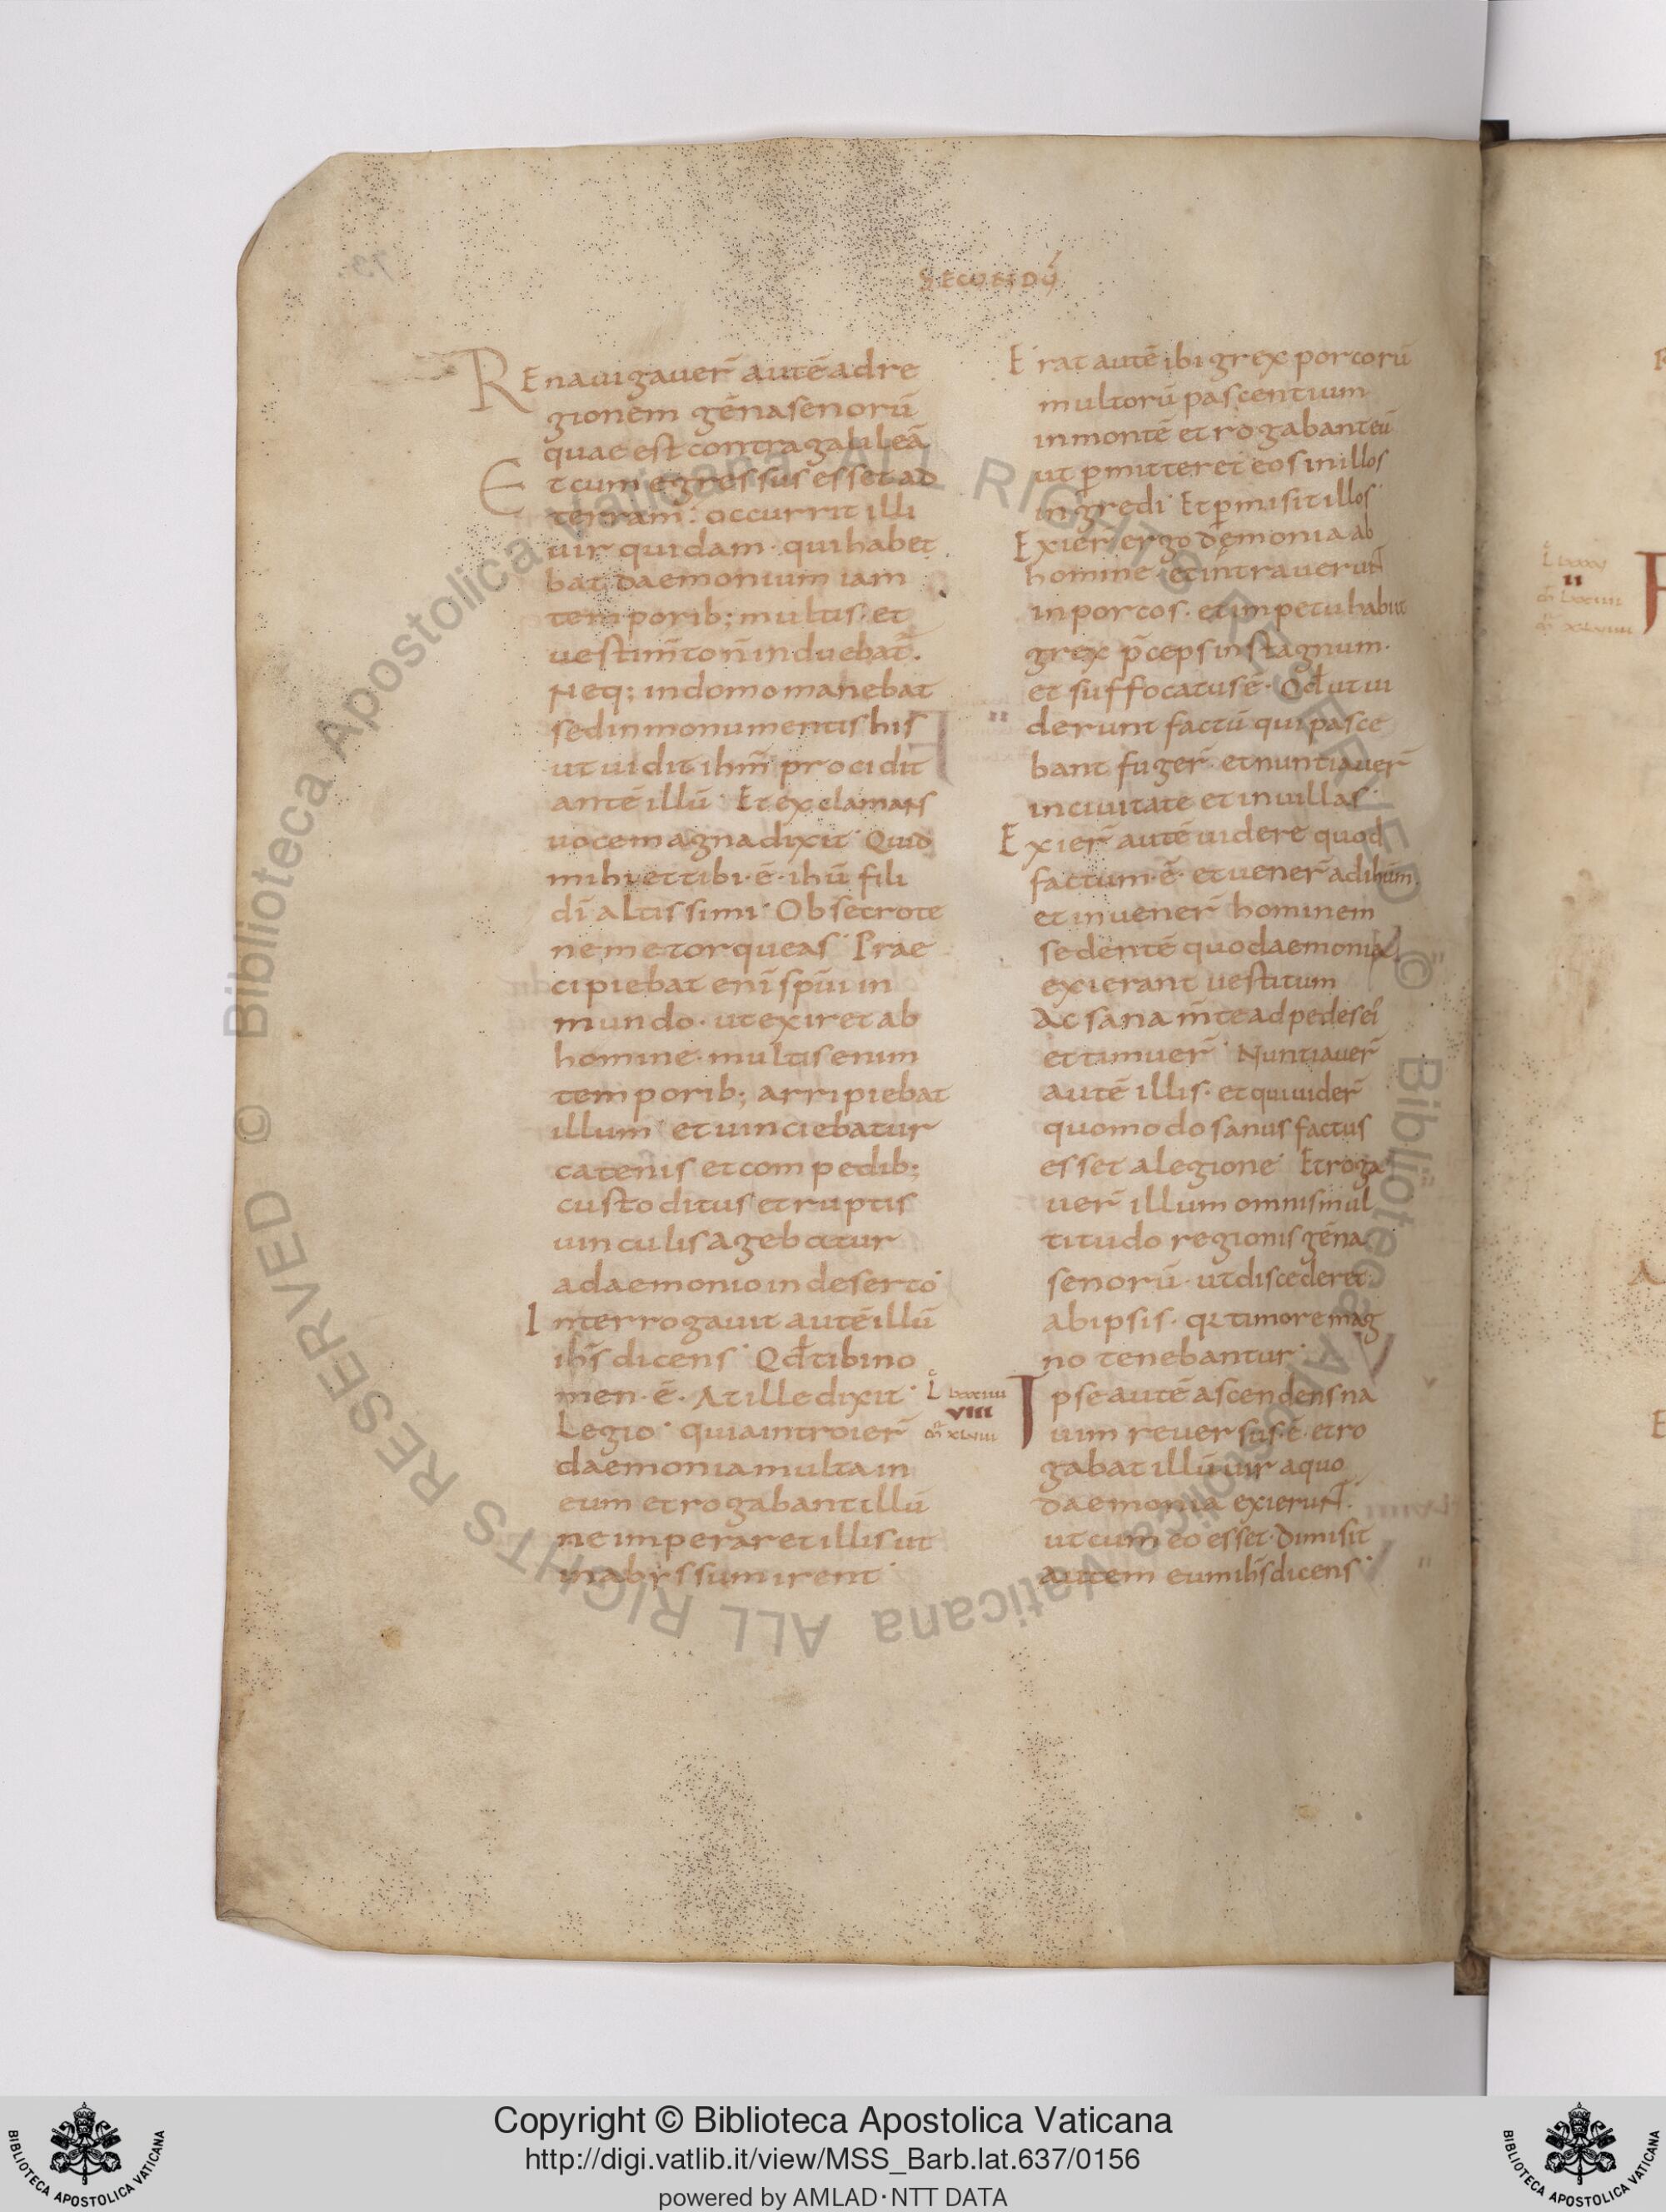 SECUNDŪ
REnauigauer̄ autē adre
gionem genasenorū
quae est contra galileā
Et cum egressus esset ad
terram: occurrit illi
uir quidam· qui habet
bat daemonium iam
temporib; multis· et
uestim̄to n̄ induebat̄.
Neq; indomo manebat
sed inmonumentis his
ut uidit ihm̄ procidit
ante illū· Et exclamans
uocemagna dixit· Quid
mihi et tibi·ē·ihū fili
dī altissimi· Obsecrote
ne me torqueas· Prae
cipiebat enī sp̄ui in
mundo· utexiret ab
homine· multis enim
temporib; arripiebat
illum· et uinciebatur
catenis et compedib;
custoditus et ruptis
uinculis agebatur
adaemonio indeserto·
Interrogauit autē illū
ihs̄ dicens· Qd̄ tibi no
men·ē· At ille dixit·
Legio· quia introier̄
daemonia multa in
eum et rogabant illū
ne imperaret illis ut
inabyssum irent·
Erat autē ibi grex porcorū
multorū pascentium
inmontē et rogabant eū
ut ꝑmitteret eos inillos
ingredi· Et ꝑmisit illos·
Exier̄ ergo demonia ab
homine· et intrauerunt
inporcos· et impetu habiit
grex p̄ceps instagnum·
et suffocatus ē· Qd̄ ut ui
derunt factū qui pasce
bant fuger̄· et nuntiauer̄
inciuitate et inuillas·
Exier̄ autē uidere quod
factum·ē· et uener̄ ad ihūm
et inuener̄ hominem
sedentē quo daemonia
exierant uestitum
Ac sana m̄te ad pedes ei
et timuer̄· Nuntiauer̄
autē illis· et qui uider̄
quomodo sanus factus
esset alegione· Et roga
uer̄ illum omnis mul
titudo regionis gena
senorū· ut discederet
abipsis· qı timore mag
no tenebantur·
L̊ lxxxiiii
VIII
m̊r xlviii
Ipse autē ascendens na
uim reuersus·ē· et ro
gabat illū uir aquo
daemonia exierunt·
ut cum eo esset· Dimisit
autem eum ihs̄ dicens·
Copyright © Biblioteca Apostolica Vaticana
http://digi.vatlib.it/view/MSS_Barb.lat.637/0156
powered by AMLAD·NTT DATA
BIBLIOTECA APOSTOLICA VATICANA
BIBLIOTECA APOSTOLICA VATICANA
© Biblioteca Apostolica Vaticana ALL RIGHTS RESERVED
© Biblioteca Apostolica Vaticana ALL RIGHTS RESERVED